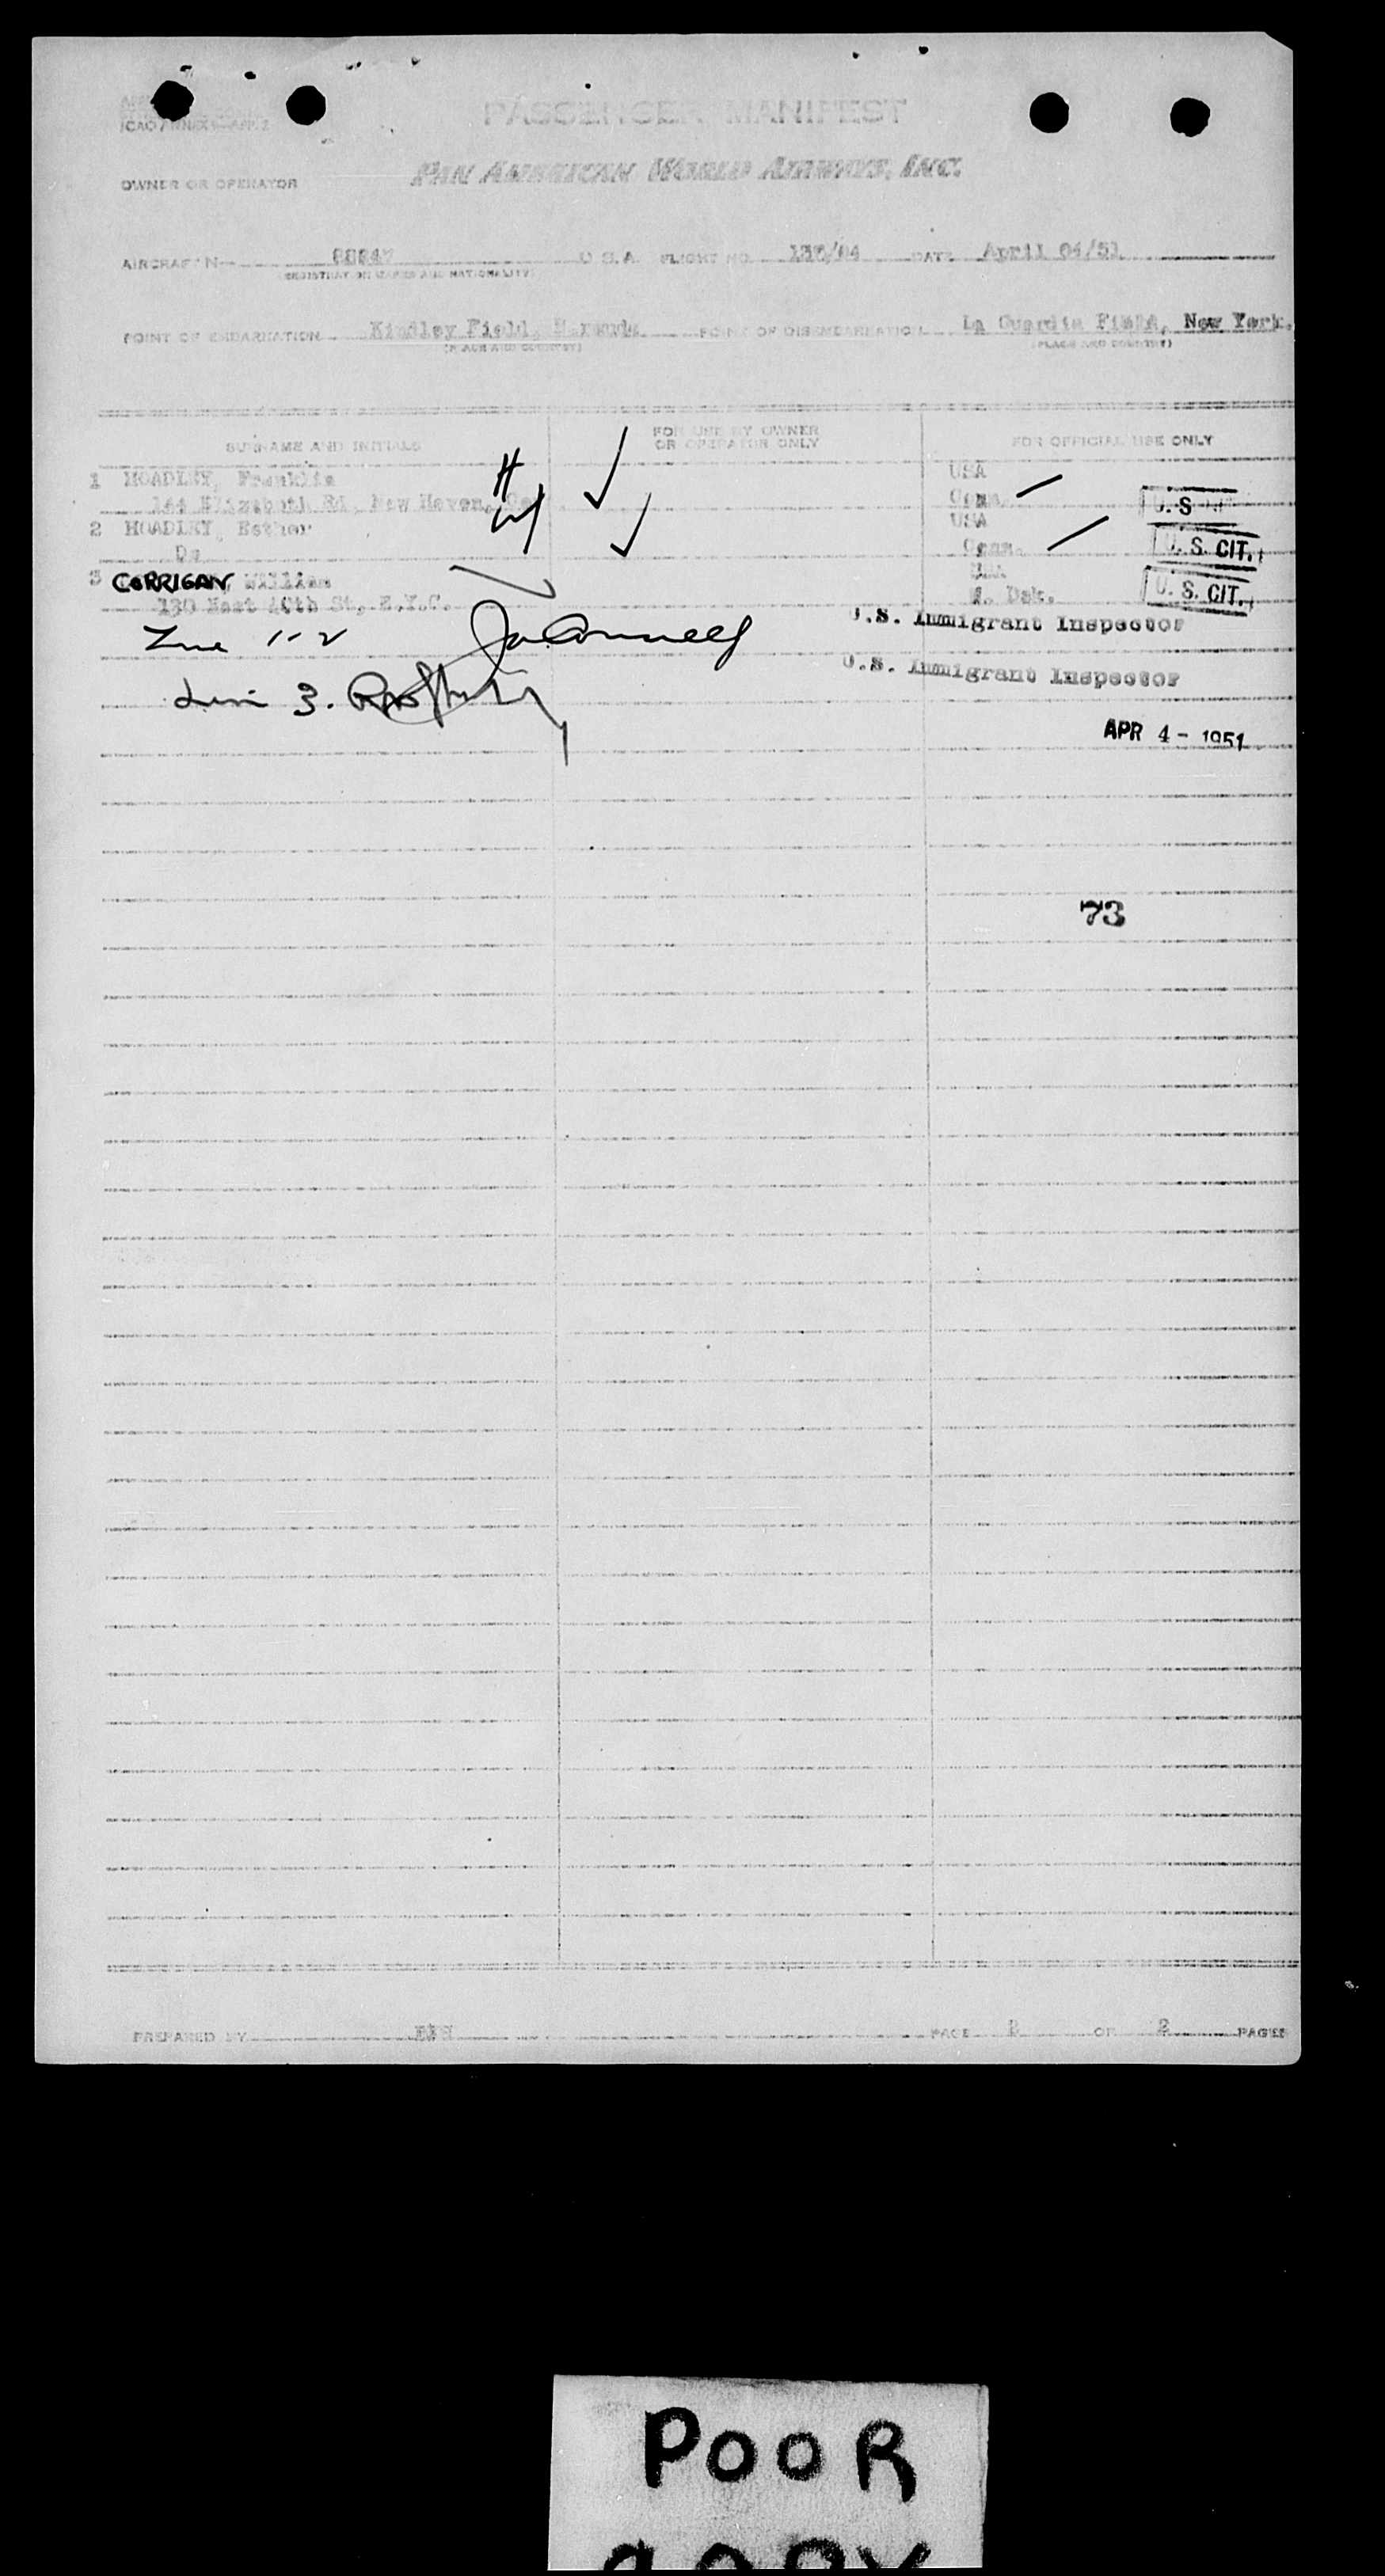 PASSENGER MANIFEST
OWNER OR OPERATOR PAN AMERICAN WORLD AIRWAYS, INC.
AIRCRAFT N- U S A FLIGHT NO. DATE April 04/51
(REGISTRATION MARKS AND NATIONALITY)
POINT OF EMBARKATION Kindley Field, Bermuda POINT OF DISEMBARKATION La Guardia Field, New York.
(PLACE AND COUNTRY) (PLACE AND COUNTRY)
SURNAME AND INITIALS FOR USE BY OWNER OR OPERATOR ONLY FOR OFFICIAL USE ONLY
1 HOADLEY, Franklin H USA
Elizabeth Rd, New Haven, Conn. U. S
2 HOADLEY, Esther W USA
Do Conn. U. S. CIT.
3 CORRIGAN, William
130 East 40th St, N.Y.C. N. Dak. U. S. CIT.
Line 1-2 U.S. Immigrant Inspector
Line 3. U.S. Immigrant Inspector
APR 4 - 1951
73
PREPARED BY PAGE 2 OF 2 PAGES
POOR
COPY